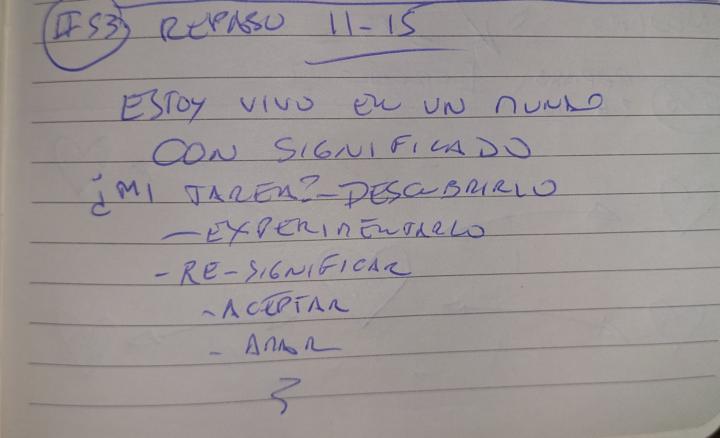 #53 REPASO 11-15
ESTOY VIVO EN UN MUNDO
CON SIGNIFICADO
¿MI TAREA?-DESCUBRIRLO
-EXPERIMENTARLO
-RE-SIGNIFICAR
-ACEPTAR
-AMAR